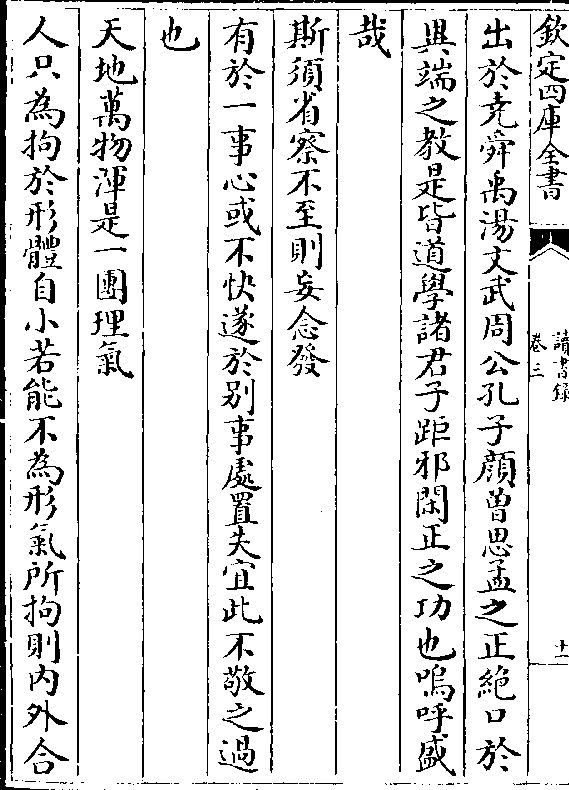 欽定四庫全書
讀書録
卷三
十一
出於堯舜禹湯文武周公孔子顔曾思孟之正絶口於
異端之教是皆道學諸君子距邪閑正之功也嗚呼盛
哉
斯須省察不至則妄念發
有於一事心或不快遂於别事處置失宜此不敬之過
也
天地萬物渾是一團理氣
人只為拘於形體自小若能不為形氣所拘則内外合